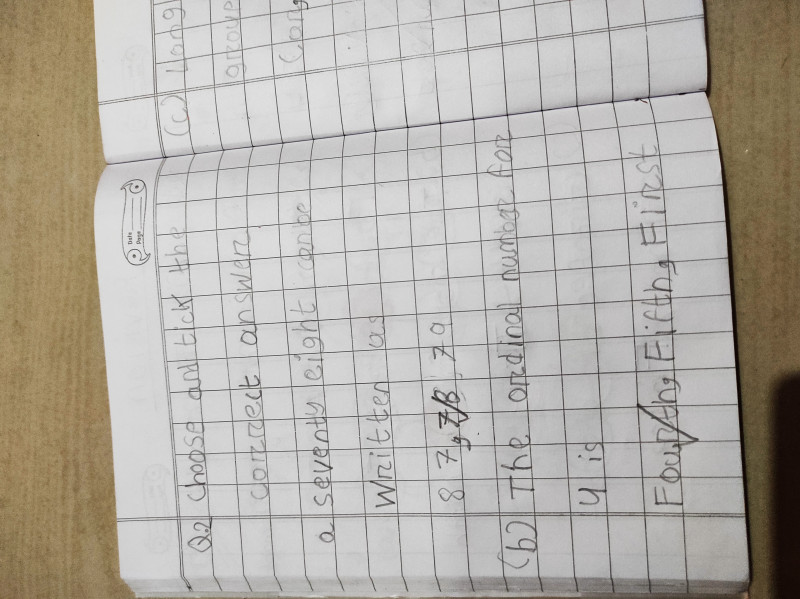 Date
Page
Q.2 Choose and tick the
correct answer.
a seventy eight canbe
Written as
8 7, 78, 79
(b) The ordinal number for
4 is
Fourth, Fifth, First
(c) Long
groove